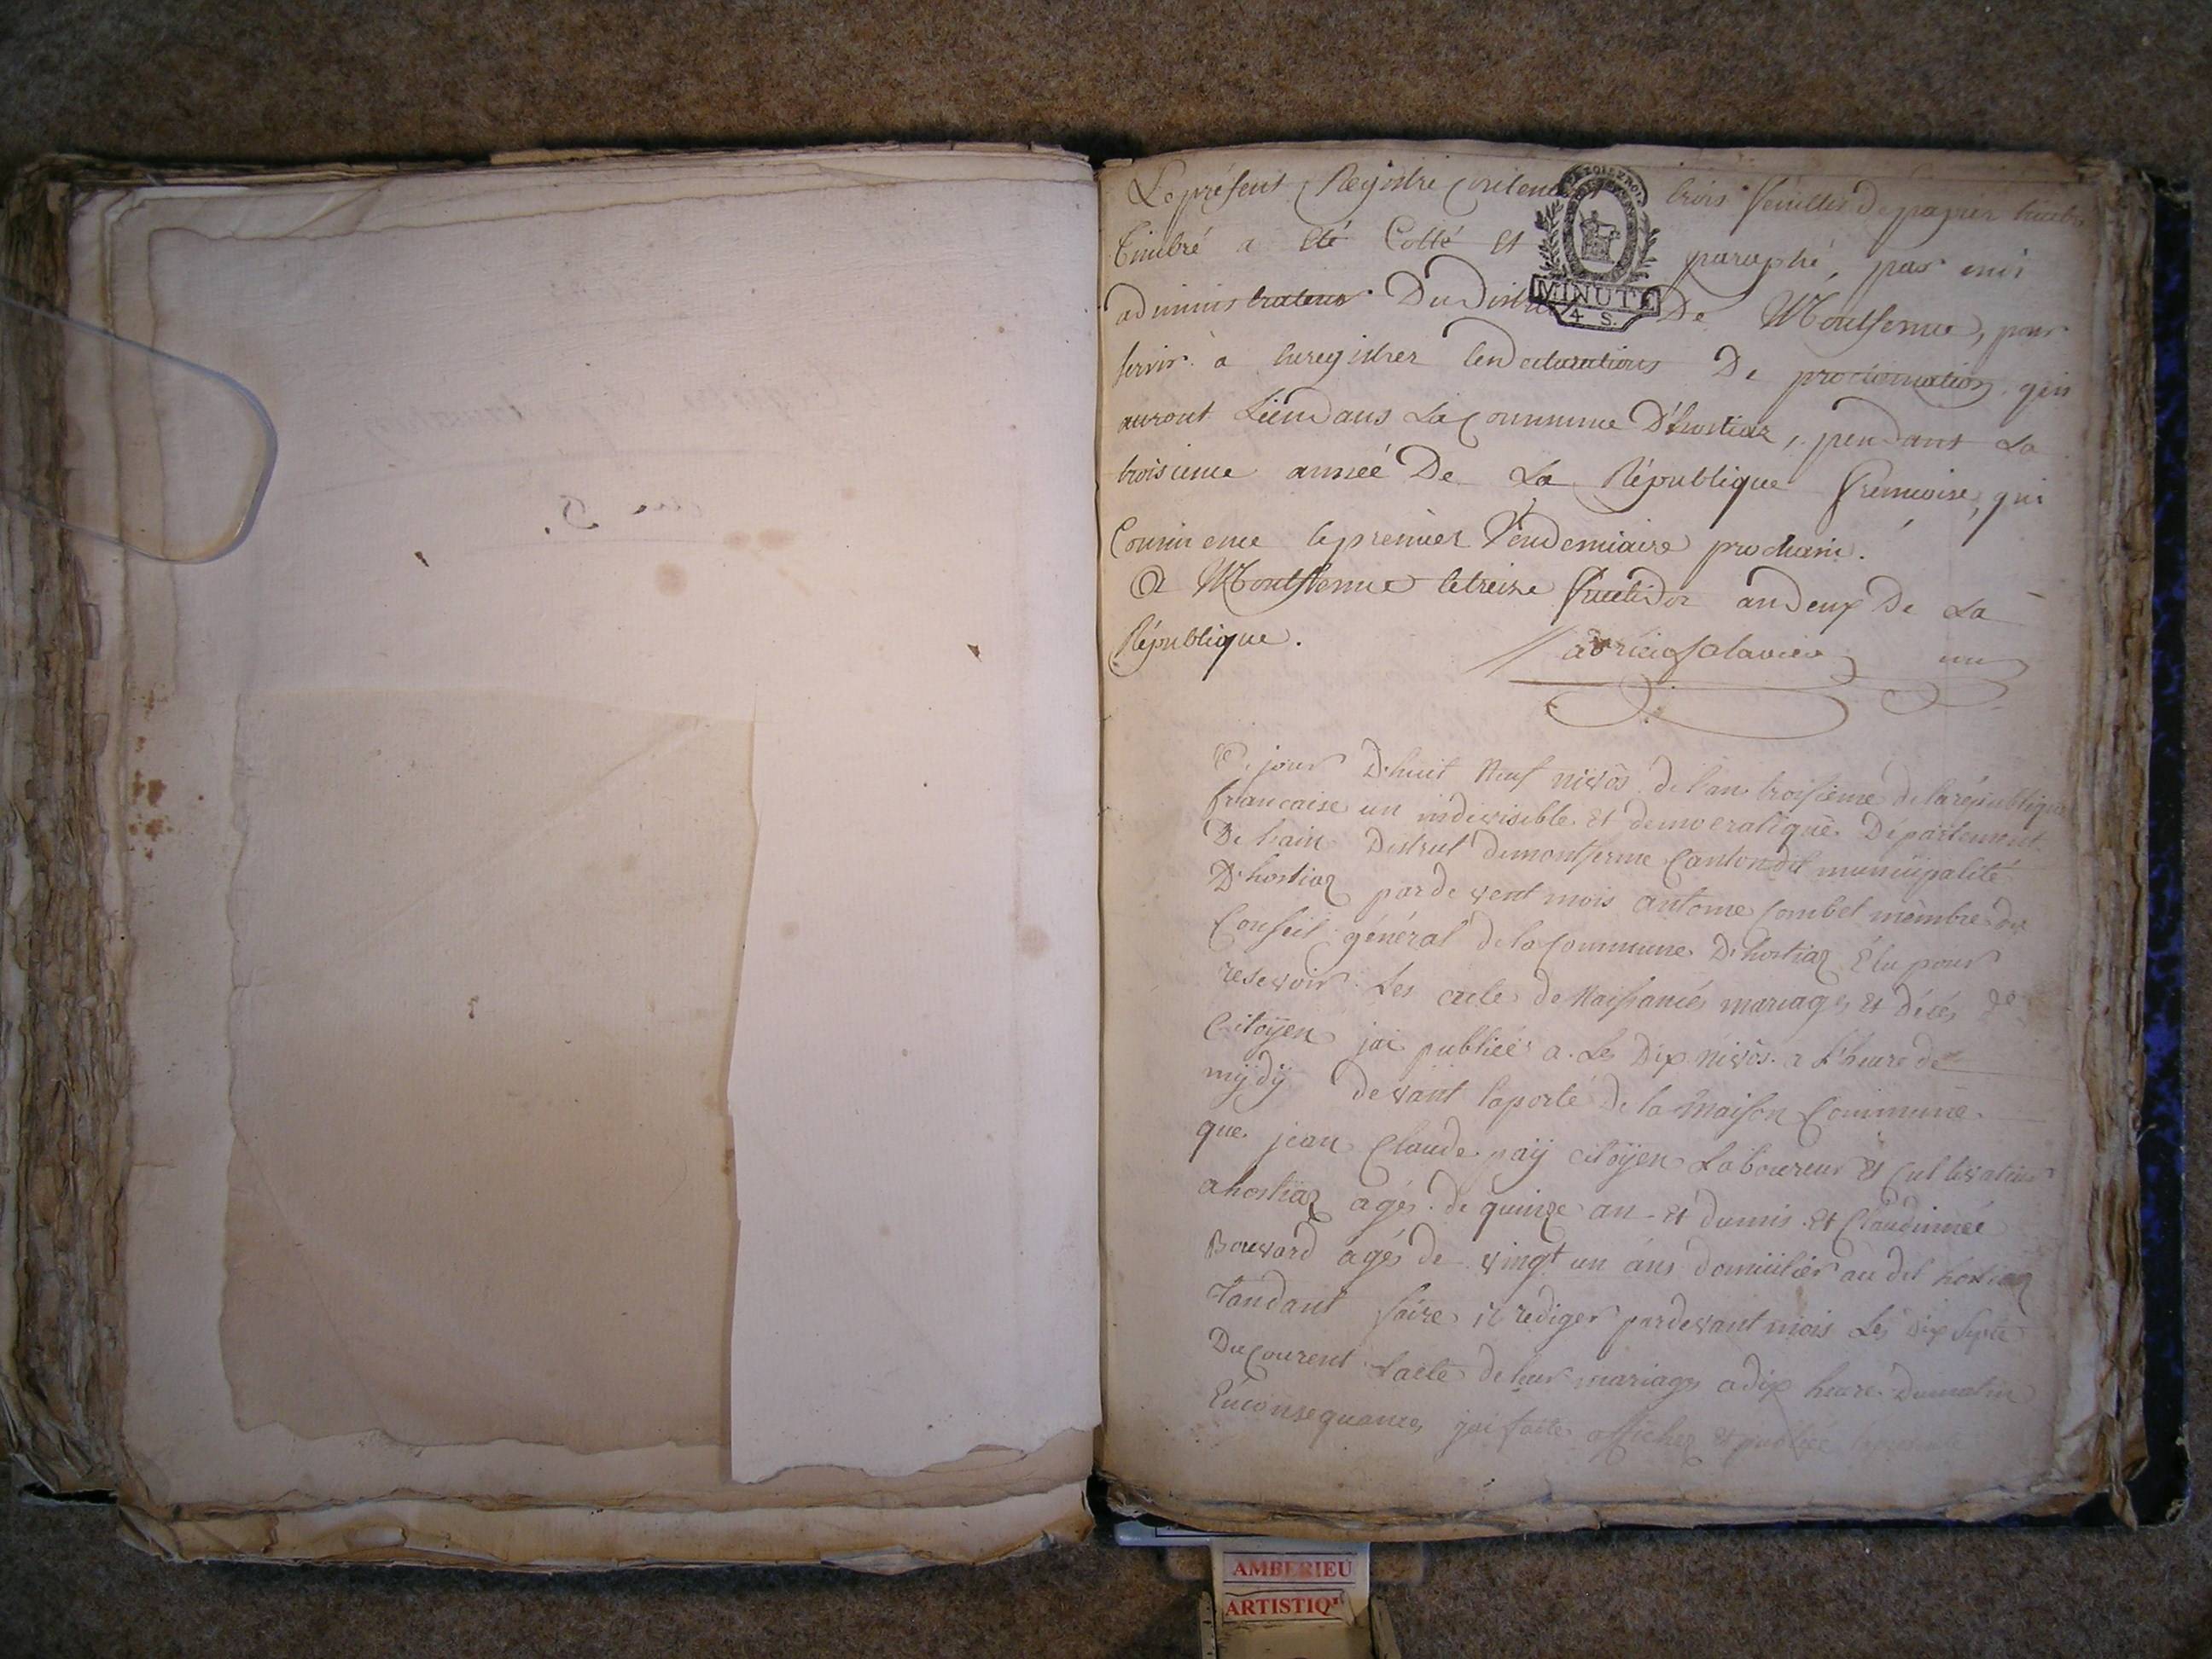 an 3.
Le présent Registre Contenant trois feuilles de papier
timbré a été Cotté et paraphé, par moi
administrateur Du District De Montferme, pour
servir à Enregistrer les declarations De proclamation qui
auront Lieu dans La Commune D'hostiaz, pendant La
troisieme année De La République françoise, qui
Commence le premier Vendemiaire prochain.
A Montferme le treize fructidor an deux De La
République.
MINUTE
4 S.
Ce jour D'huit Neuf nivôs de l'an troisieme de la république
francaise un indivisible et democratique Département
De hain Distrut demontferme Canton dit municipalité
D'hostiaz par de vent mois antoine Combet membre du
Conseil général de la Commune D'hostiaz Élu pour
resevoir Les acte de Naissances mariages et décés de
Citoÿen jai publiée a Les Dix nivôs a l'heure de
mÿdÿ devant laporte De la maison Commune
que jean Claude paÿ citoÿen Laboureur et Cultivateur
ahostiaz agés de quinze an et dumis et Claudinnée
Bouvard agés de vingt un ans domiilier audit hostiaz
tandant faire et rediger pardevant mois Les dix septe
Ducourent lacte de leur mariage a dix heure dumatin
Enconsequance jai faite afficher et publiée
AMBERIEU
ARTISTIQ